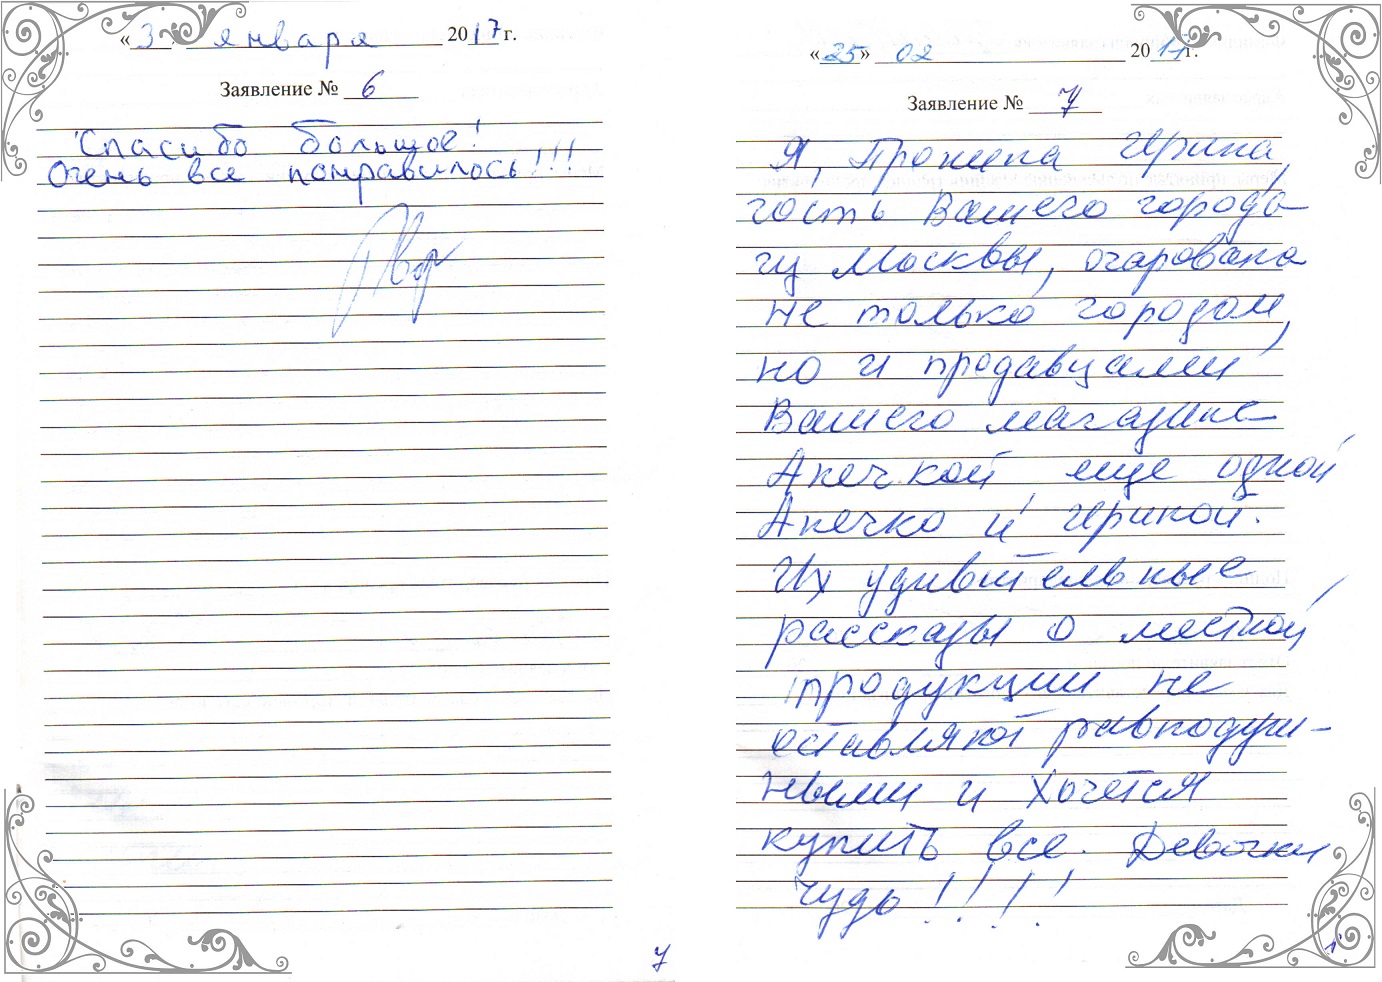 « 3 » января 2017 г.
Заявление № 6
Спасибо большое!
Очень все понравилось!!!
7
«25» 02 2017 г.
Заявление № 7
Я, Ирина,
гость Вашего города
из Москвы, очарована
не только городом,
но и продавцами
Вашего магазина
Анечкой еще одной
Анечко и Ириной.
Их удивительные
рассказы о местной
продукции не
оставляют равнодуш-
ными и хочется
купить все. Девочки
чудо!!!!